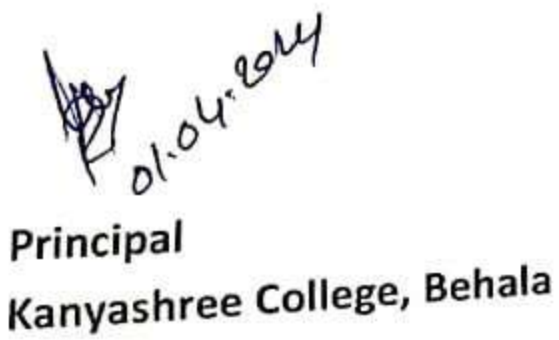 01.04.2024
Principal
Kanyashree College, Behala